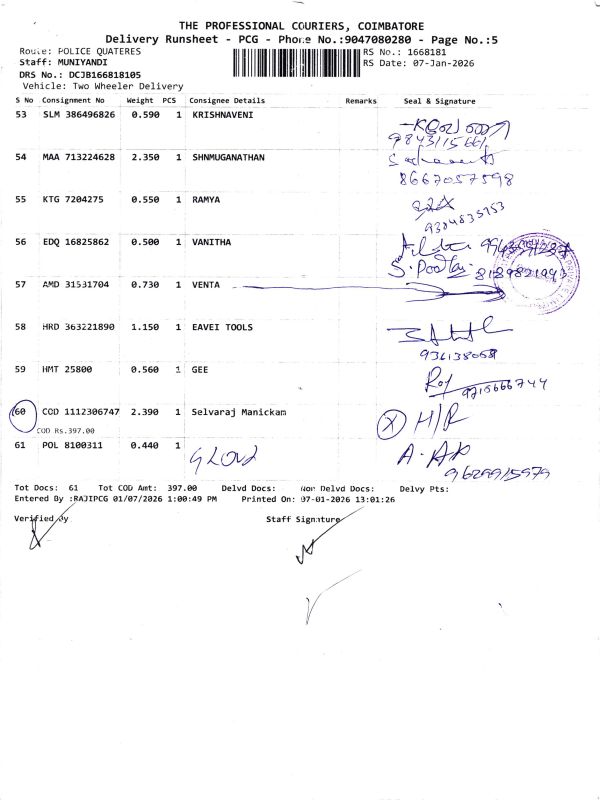 THE PROFESSIONAL COURIERS, COIMBATORE
Delivery Runsheet - PCG - Phone No.:9047080280 - Page No.:5
Route: POLICE QUATERES RS No.: 1668181
Staff: MUNIYANDI RS Date: 07-Jan-2026
DRS No.: DCJB166818105
Vehicle: Two Wheeler Delivery
S No Consignment No Weight PCS Consignee Details Remarks Seal & Signature
53 SLM 386496826 0.590 1 KRISHNAVENI
54 MAA 713224628 2.350 1 SHNMUGANATHAN
8667057598
55 KTG 7204275 0.550 1 RAMYA
56 EDQ 16825862 0.500 1 VANITHA
57 AMD 31531704 0.730 1 VENTA
58 HRD 363221890 1.150 1 EAVEI TOOLS
59 HMT 25800 0.560 1 GEE
9715666744
60 COD 1112306747 2.390 1 Selvaraj Manickam X H/R
COD Rs.397.00
61 POL 8100311 0.440 1
9629915979
Tot Docs: 61 Tot COD Amt: 397.00 Delvd Docs: Nor Delvd Docs: Delvy Pts:
Entered By :RAJIPCG 01/07/2026 1:00:49 PM Printed On: 07-01-2026 13:01:26
Verified By Staff Signature